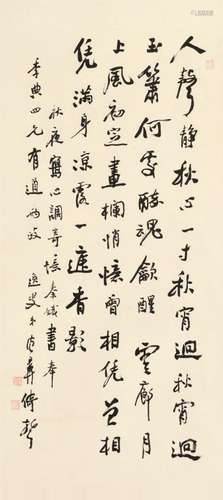 人聲靜秋心一寸秋宵迴秋宵迴
玉簫何處醉魂醒雲廊月
上風初定畫欄悄憶曾相凭曾相
凭滿身涼露一庭香影
秋夜寫心調寄憶秦娥書奉
李典四兄有道兩政 逸叟弟